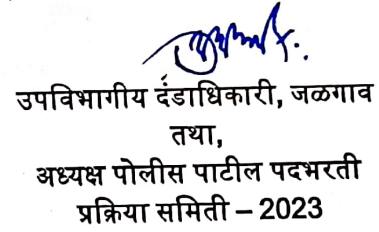 उपविभागीय दंडाधिकारी, जळगाव
तथा,
अध्यक्ष पोलीस पाटील पदभरती
प्रक्रिया समिती – 2023